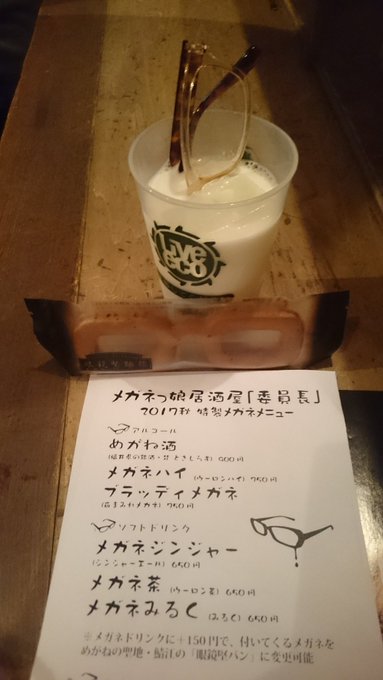 Live
eco
メガネっ娘居酒屋「委員長」
2017秋 特製メガネメニュー
アルコール
めがね酒
900円
メガネハイ (ウーロンハイ) 750円
ブラッディメガネ
750円
ソフトドリンク
メガネジンジャー
(ジンジャーエール) 650円
メガネ茶 (ウーロン茶) 650円
メガネみるく (みるく) 650円
※メガネドリンクに+150円で、付いてくるメガネを
めがねの聖地・鯖江の「眼鏡堅パン」に変更可能